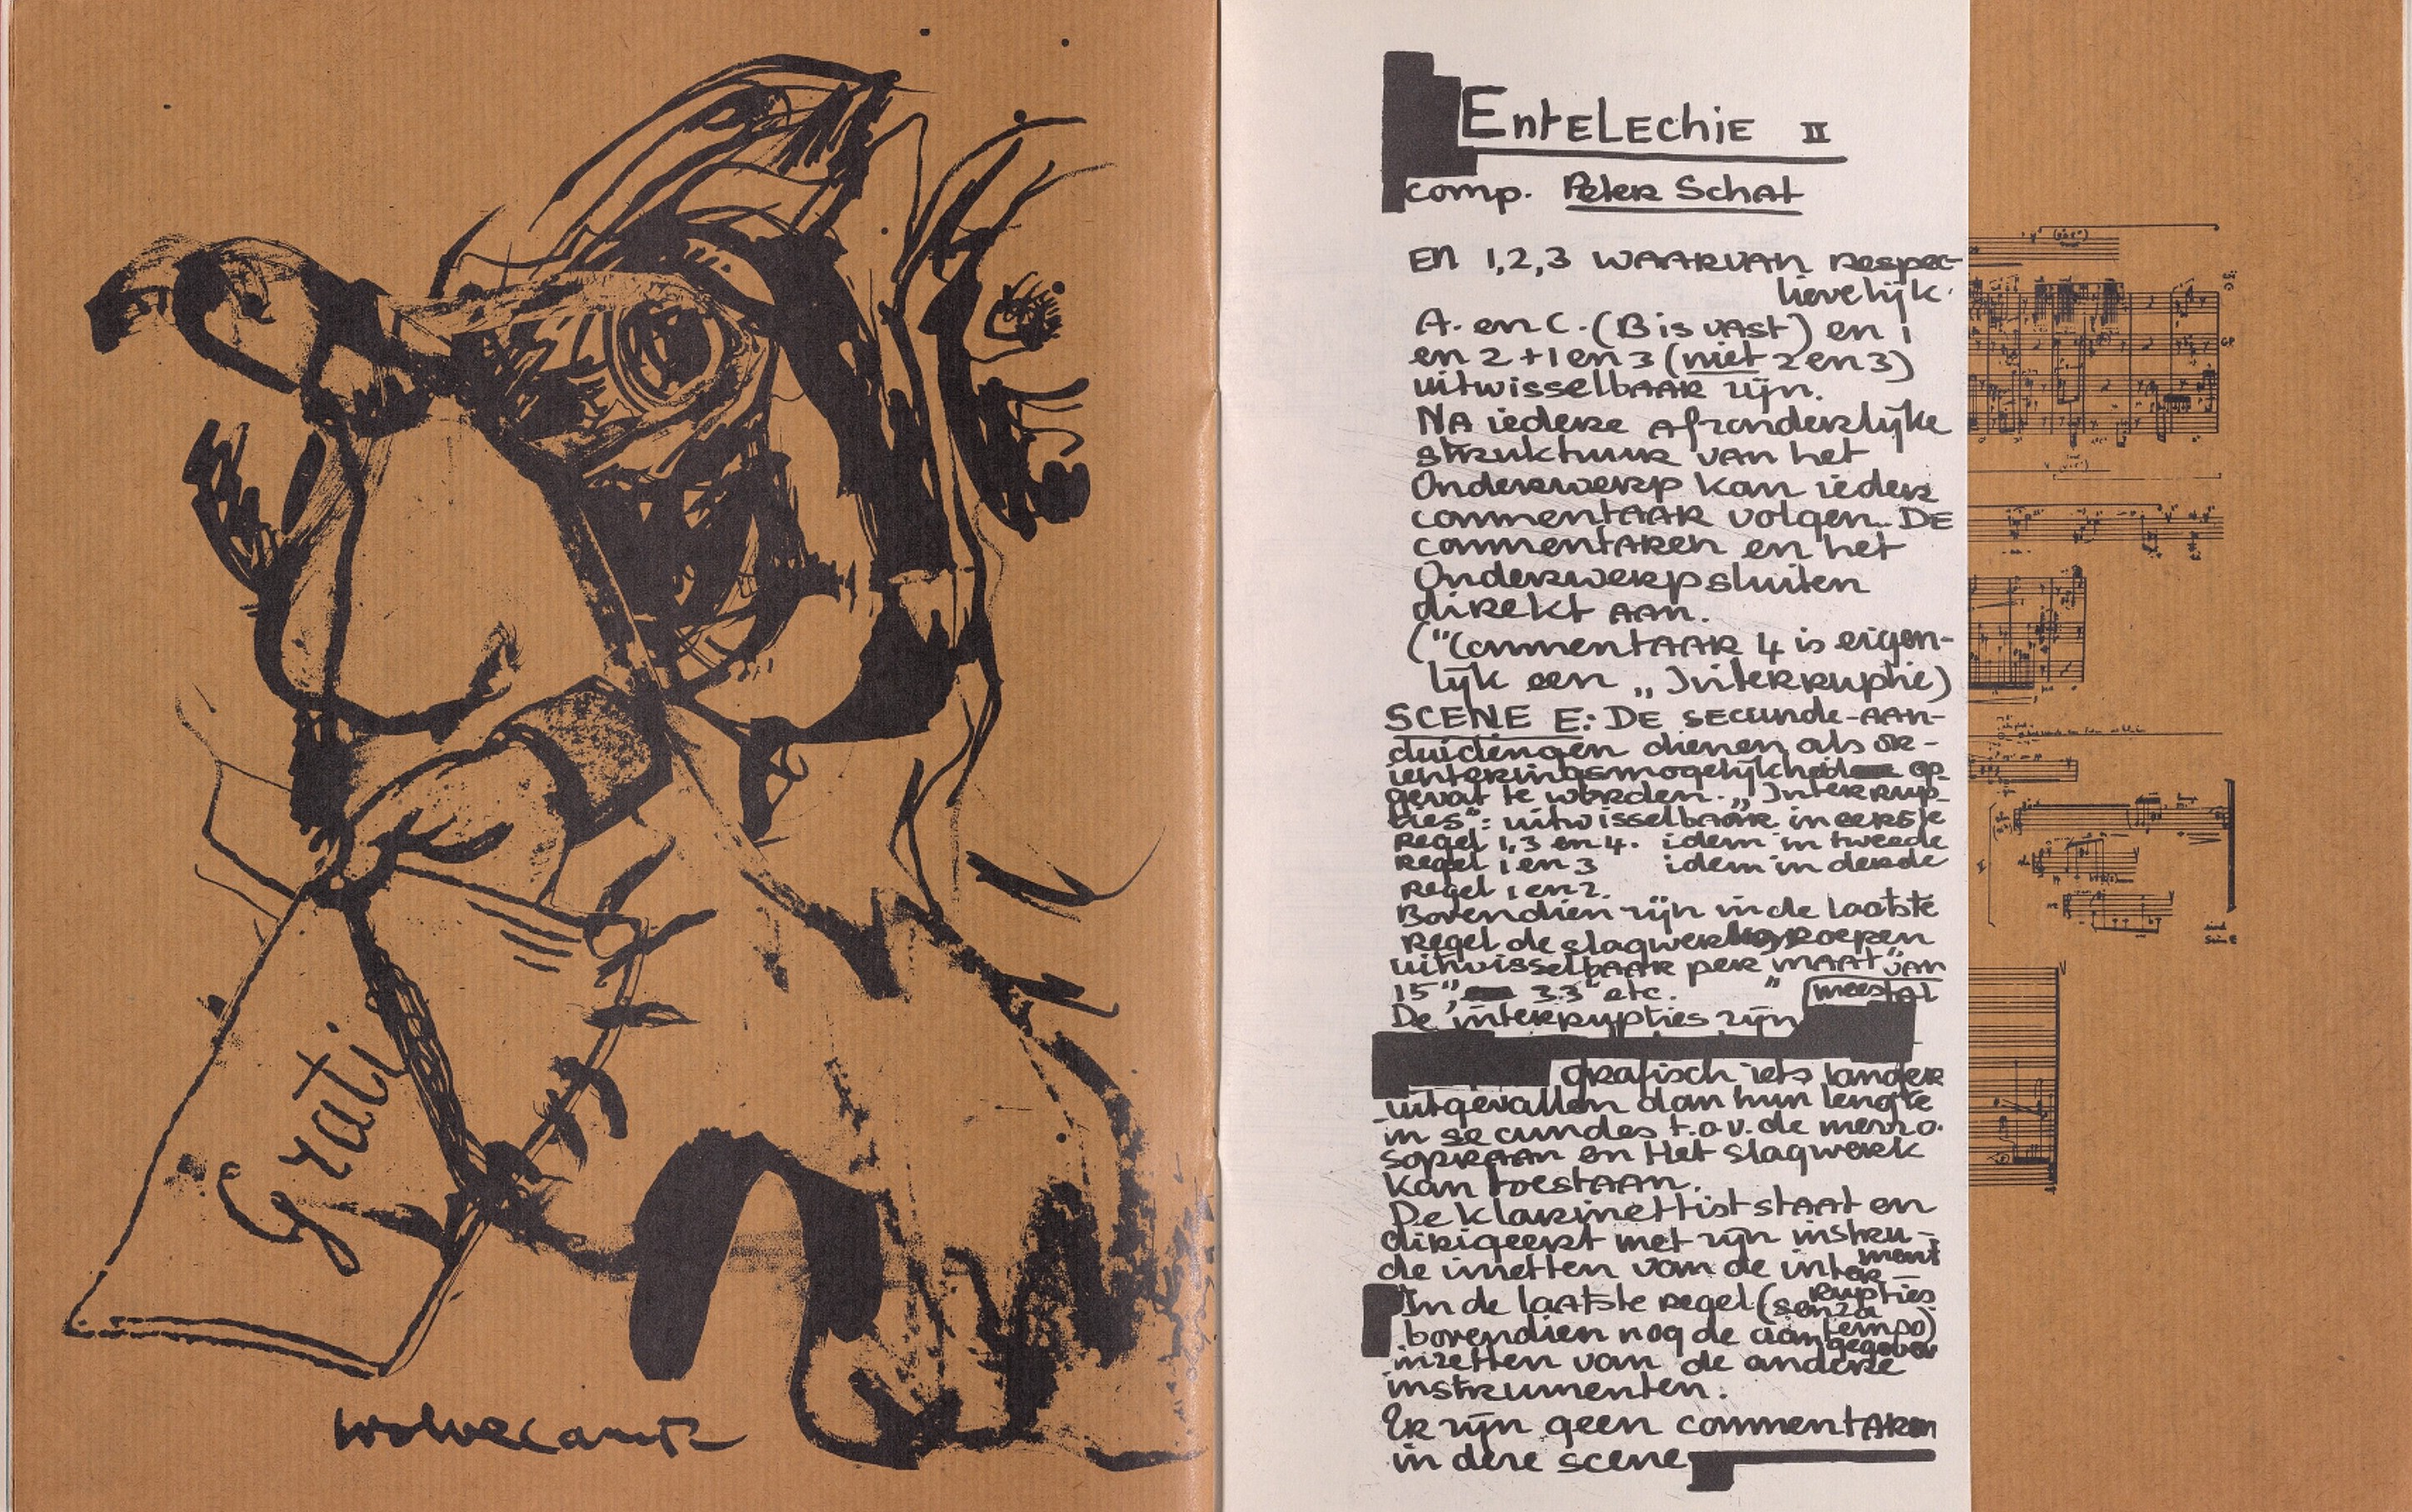 Grati
wolvecamp
EntELEchiE II
comp. Peter Schat
En 1,2,3 WAARVAN respec-
tievelijk.
A. en C. (B is VAST) en 1
en 2 + 1 en 3 (niet 2 en 3)
uitwisselbAAR zijn.
NA iedere Afzonderlijke
struktuur van het
Onderwerp kan ieder
commentAAR volgen. DE
commentAren en het
Onderwerp sluiten
direkt AAn.
("CommentAAR 4 is eigen-
lijk een „Interruptie)
SCENE E: DE secunde-AAn-
duidingen dienen als or-
iënteringsmogelijkheid op-
gevat te worden. „Interrup-
ties": uitwisselbaar in eerste
Regel 1,3 en 4. idem in tweede
Regel 1 en 3 idem in derde
Regel 1 en 2.
Bovendien zijn in de laatste
Regel de slagwerkgroepen
uitwisselbAAR per "mAAt" van
15", 33" etc.
meestal
De interrupties zijn
grafisch iets langer
uitgevallen dan hun lengte
in secundes t.o.v. de mezzo-
sopraan en Het slagwerk
kan toestAAn.
De klarinettist staat en
dirigeert met zijn instru-
ment
de inzetten van de inter-
rupties
In de laatste regel (senza
tempo)
bovendien nog de aangegeven
inzetten van de andere
instrumenten.
Er zijn geen commentAren
in deze scene